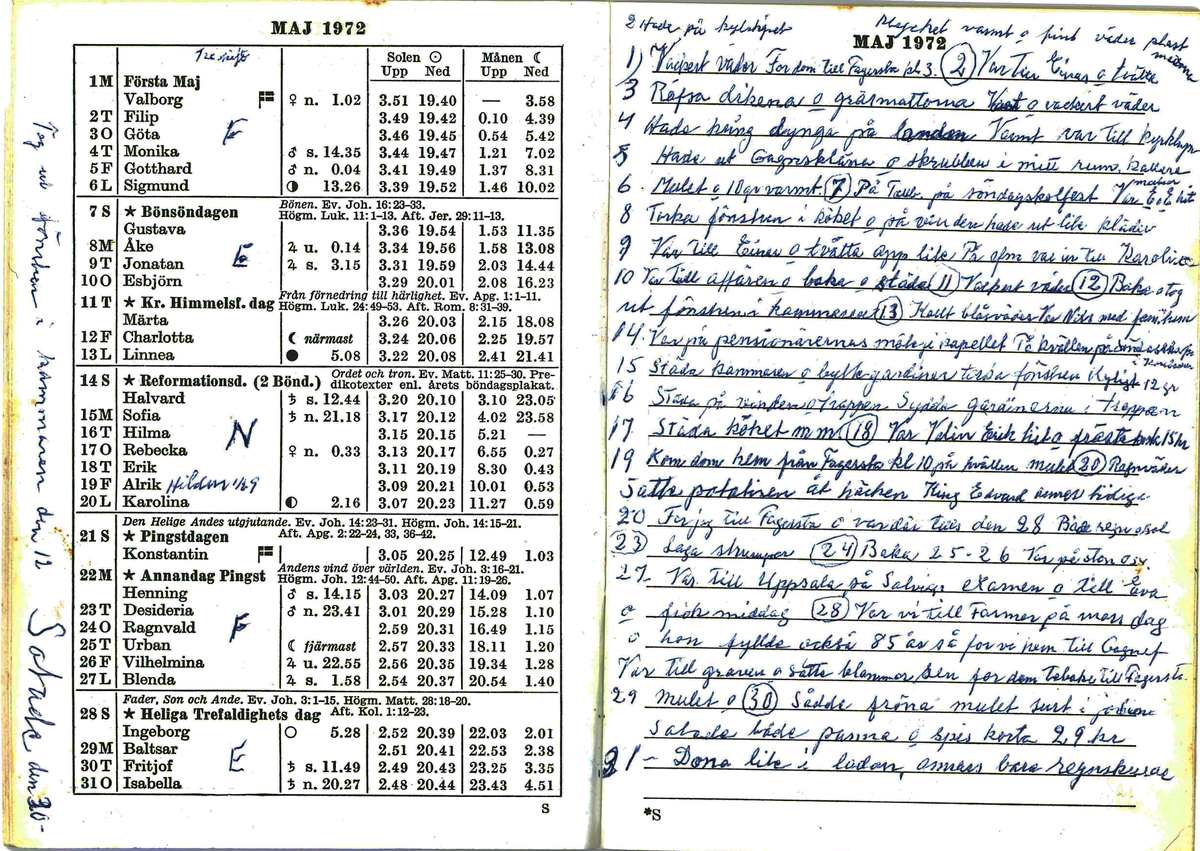 MAJ 1972
Treskift
Solen ☉ Månen ☾
Upp Ned Upp Ned
1M Första Maj
Valborg ♀ n. 1.02 3.51 19.40 — 3.58
2T Filip 3.49 19.42 0.10 4.39
3O Göta E 3.46 19.45 0.54 5.42
4T Monika ♂ s. 14.35 3.44 19.47 1.21 7.02
5F Gotthard ♂ n. 0.04 3.41 19.49 1.37 8.31
6L Sigmund ◑ 13.26 3.39 19.52 1.46 10.02
7 S ★ Bönsöndagen Bönen. Ev. Joh. 16:23–33.
Högm. Luk. 11:1–13. Aft. Jer. 29:11–13.
Gustava 3.36 19.54 1.53 11.35
8M Åke E ♃ u. 0.14 3.34 19.56 1.58 13.08
9T Jonatan ♃ s. 3.15 3.31 19.59 2.03 14.44
10O Esbjörn 3.29 20.01 2.08 16.23
11 T ★ Kr. Himmelsf. dag Från förnedring till härlighet. Ev. Apg. 1:1–11.
Högm. Luk. 24:49–53. Aft. Rom. 8:31–39.
Märta 3.26 20.03 2.15 18.08
12F Charlotta ☾ närmast 3.24 20.06 2.25 19.57
13L Linnea ● 5.08 3.22 20.08 2.41 21.41
14 S ★ Reformationsd. (2 Bönd.) Ordet och tron. Ev. Matt. 11:25–30. Pre-
dikotexter enl. årets böndagsplakat.
Halvard ♄ s. 12.44 3.20 20.10 3.10 23.05
15M Sofia ♄ n. 21.18 3.17 20.12 4.02 23.58
16T Hilma N 3.15 20.15 5.21 —
17O Rebecka ♀ n. 0.33 3.13 20.17 6.55 0.27
18T Erik 3.11 20.19 8.30 0.43
19F Alrik 3.09 20.21 10.01 0.53
20L Karolina ◐ 2.16 3.07 20.23 11.27 0.59
21 S ★ Pingstdagen Den Helige Andes utgjutande. Ev. Joh. 14:23–31. Högm. Joh. 14:15–21.
Aft. Apg. 2:22–24, 33, 36–42.
Konstantin 3.05 20.25 12.49 1.03
22M ★ Annandag Pingst Andens vind över världen. Ev. Joh. 3:16–21.
Högm. Joh. 12:44–50. Aft. Apg. 11:19–26.
Henning ♂ s. 14.15 3.03 20.27 14.09 1.07
23T Desideria ♂ n. 23.41 3.01 20.29 15.28 1.10
24O Ragnvald F 2.59 20.31 16.49 1.15
25T Urban ☾ fjärmast 2.57 20.33 18.11 1.20
26F Vilhelmina ♃ u. 22.55 2.56 20.35 19.34 1.28
27L Blenda ♃ s. 1.58 2.54 20.37 20.54 1.40
28 S ★ Heliga Trefaldighets dag Fader, Son och Ande. Ev. Joh. 3:1–15. Högm. Matt. 28:18–20.
Aft. Kol. 1:12–23.
Ingeborg ○ 5.28 2.52 20.39 22.03 2.01
29M Baltsar E 2.51 20.41 22.53 2.38
30T Fritjof ♄ s. 11.49 2.49 20.43 23.25 3.35
31O Isabella ♄ n. 20.27 2.48 20.44 23.43 4.51
S
Tog ut fönstren i kammaren den 12 Sotade den 20-
2 Hade på kylskåpet Mycket varmt o fint väder
MAJ 1972
1) Vackert väder For dom till Fagersta kl 3. 2 Var till Einar o tvätta
3 Räfsa dikena o gräsmattorna o vackert väder
4 Hade kring dynga på landen Varmt var till
5 Hade ut Gagnefkläna o skrubba i mitt rum. kallare
6. Mulet o 10 gr varmt. 7 På på söndagskolfest Var E o E hit
8 Torka fönstren i köket o på vinden hade ut lite kläder
9 Var till Einar o tvätta upp lite På efm var in till Karoline
10 Var till affären o baka o städa 11 Vackert väder 12 Baka o tog
ut fönstren i kammaren 13 Kallt blåsväder Var Nils med familjen
14. Var på pensionärernas möte i kapellet På kvällen på
15 Städa kammaren o bytte gardiner torka fönstren kyligt 12 gr
16 Städa på vinden o trappen Sydde gardinerna i trappen
17 Städa köket m m 18 Var Valin Erik hit o fräste 15 kr
19 Kom dom hem från Fagersta kl 10 på kvällen mulet 20 Regnväder
Satte potatisen åt häcken King Edvard annars tidiga
20 For jag till Fagersta o var där tills den 28 Både regn o sol
23 Laga strumpor 24 Baka 25-26 Var på stan o sy
27 Var till Uppsala på Solvigs examen o till Eva
o fick middag 28 Var vi till Farmor på mors dag
o hon fyllde också 85 år så for vi hem till Gagnef
Var till graven o satte blommor, sen for dom tebaks till Fagersta
29 Mulet o 30 Sådde fröna mulet surt i
Sotade både panna o spis kosta 29 kr
31 - Dona lite i ladan, annars bara regnskurar
*S